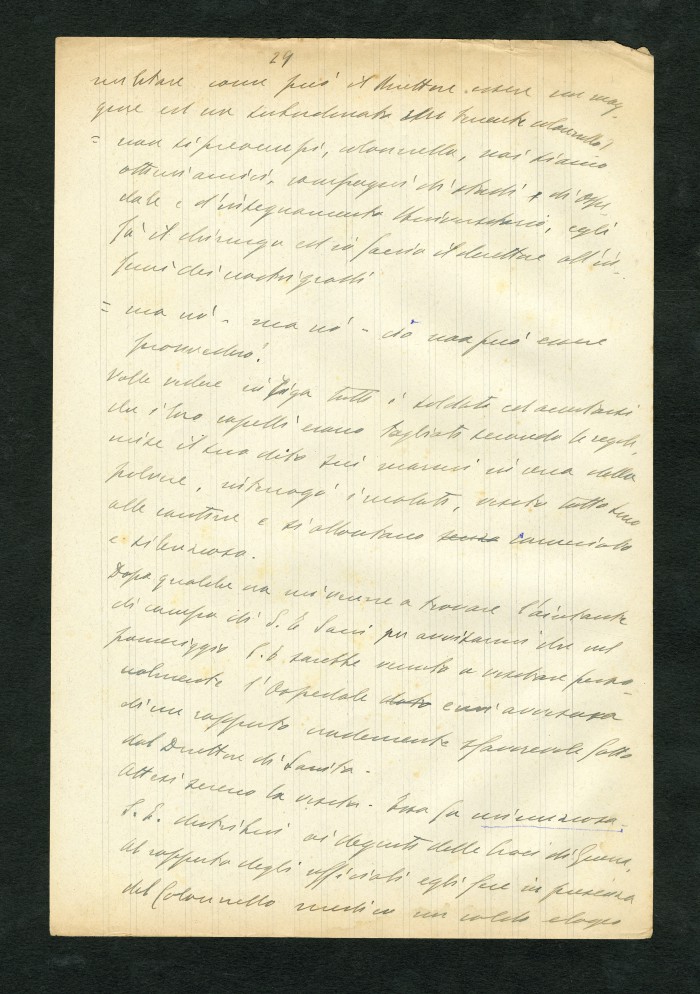 29
militare come può il direttore essere un mag-
giore ed un subordinato tenente colonnello!
= non si preoccupi, colonnello, noi siamo
ottimi amici, compagni di studi e di ospe-
dale e d'insegnamento Universitario, egli
fà il chirurgo ed io faccio il direttore all'in-
fuori dei nostri gradi
= ma nò - ma nò - ciò non può essere
Volle vedere in riga tutti i soldati ed accertarsi
che i loro capelli erano tagliati secondo le regole,
mise il suo dito sui marmi in cerca della
polvere, interrogò i malati, visitò tutto sino
alle cantine e si allontanò senza accigliato
e silenzioso.
Dopo qualche ora mi venne a trovare l'aiutante
di campo di S. E. per avvisarmi che nel
pomeriggio S. E. sarebbe venuto a visitare perso-
nalmente l'Ospedale e mi avvisava
di un rapporto sfavorevole fatto
dal Direttore di Sanità -
Attesi sereno la visita - Essa fu minuziosa.
S. E. distribuì ai degenti delle Croci di Guerra,
al rapporto degli ufficiali egli fece in presenza
del Colonnello medico un caldo elogio